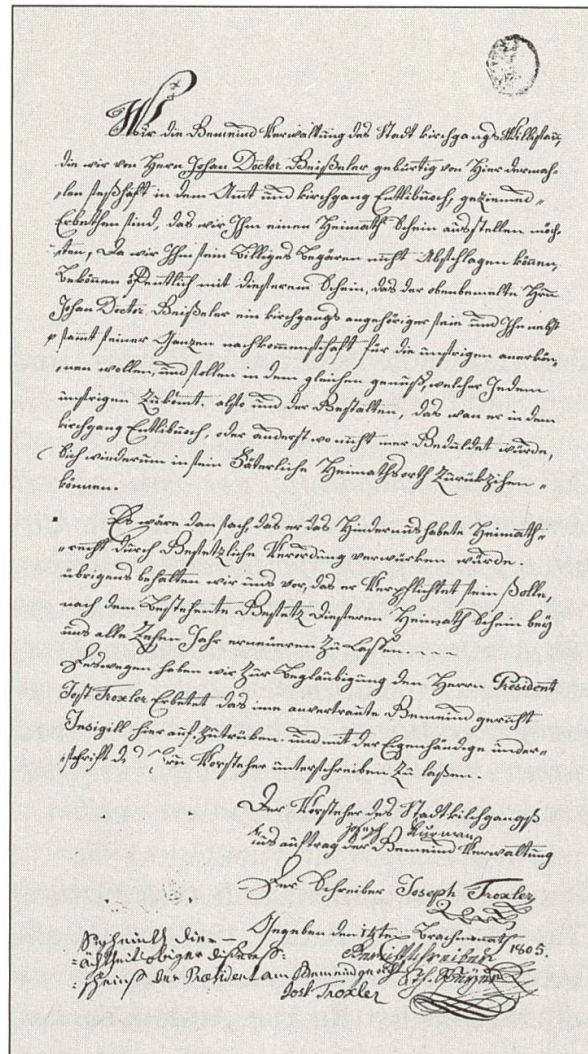 Wir die Gemeind Verwaltung des Stadt kirchgangs Willisau,
die wir von Herrn Johan Docter Beißeler gebürtig von Hier dermah-
len seßhaft in dem Amt und kirchgang Entlibuoch, geziemend
Erbethen sind, das wir Ihm einen Heimath Schein ausstellen möch-
ten, Da wir Ihm sein Billiges Begären nicht Abschlagen können,
Bekönen öffentlich mit diesterem Schein, das der obenbemelte Herr
Johan Docter Beißeler ein kirchgangs angehöriger seie und Ihn nebst
samt seiner Ganzen nachkommenschaft für die unsrigen anerkön-
nen wollen, und sollen in dem gleichen genuß, welcher Jedem
unsrigen Zukömt also und der Gestalten, das wan er in dem
kirchgang Entlibuoch, oder anderst wo nicht mer Geduldet würde,
Sich widerum in sein Väterliche Heimathsorth Zurükzihen
können.
Es wäre dan sach, das er das Hinderunshabete Heimath-
recht durch Gesetzliche Verordnung verwürken würde.
übrigens behalten wir uns vor, das er Verpflichtet sein Solle,
nach dem Bestehente Gesetz diesteren Heimath Schein bey
uns alle Zehen Jahr erneüren Zu Lassen
Deswegen haben wir Zur Beglaubigung den Herrn President
Jost Troxler Erbetet das ime anvertraute Gemeind gericht
Insigill hier auf Zutrüken und mit der Eigenhändige under-
schrift des Vorsteher unterschreiben Zu laßen.
Der Vorsteher des Stadtkilchgangs
Joseph
aus auftrag der Gemeind Verwaltung
Der Schreiber Joseph Troxler
Gegeben den 14ten Brachmonat 1805.
Bescheint die Gerichtschreiber
ächtheit obiger
scheins der Præsident am Gemeindgericht
Jost Troxler